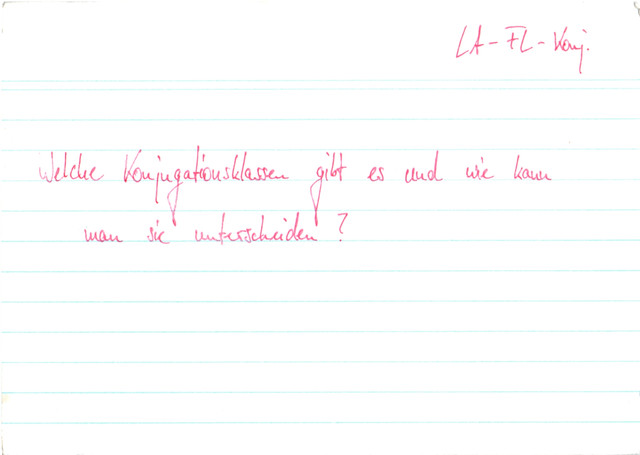 LA-FL-Konj.
Welche Konjugationsklassen gibt es und wie kann
man sie unterscheiden?